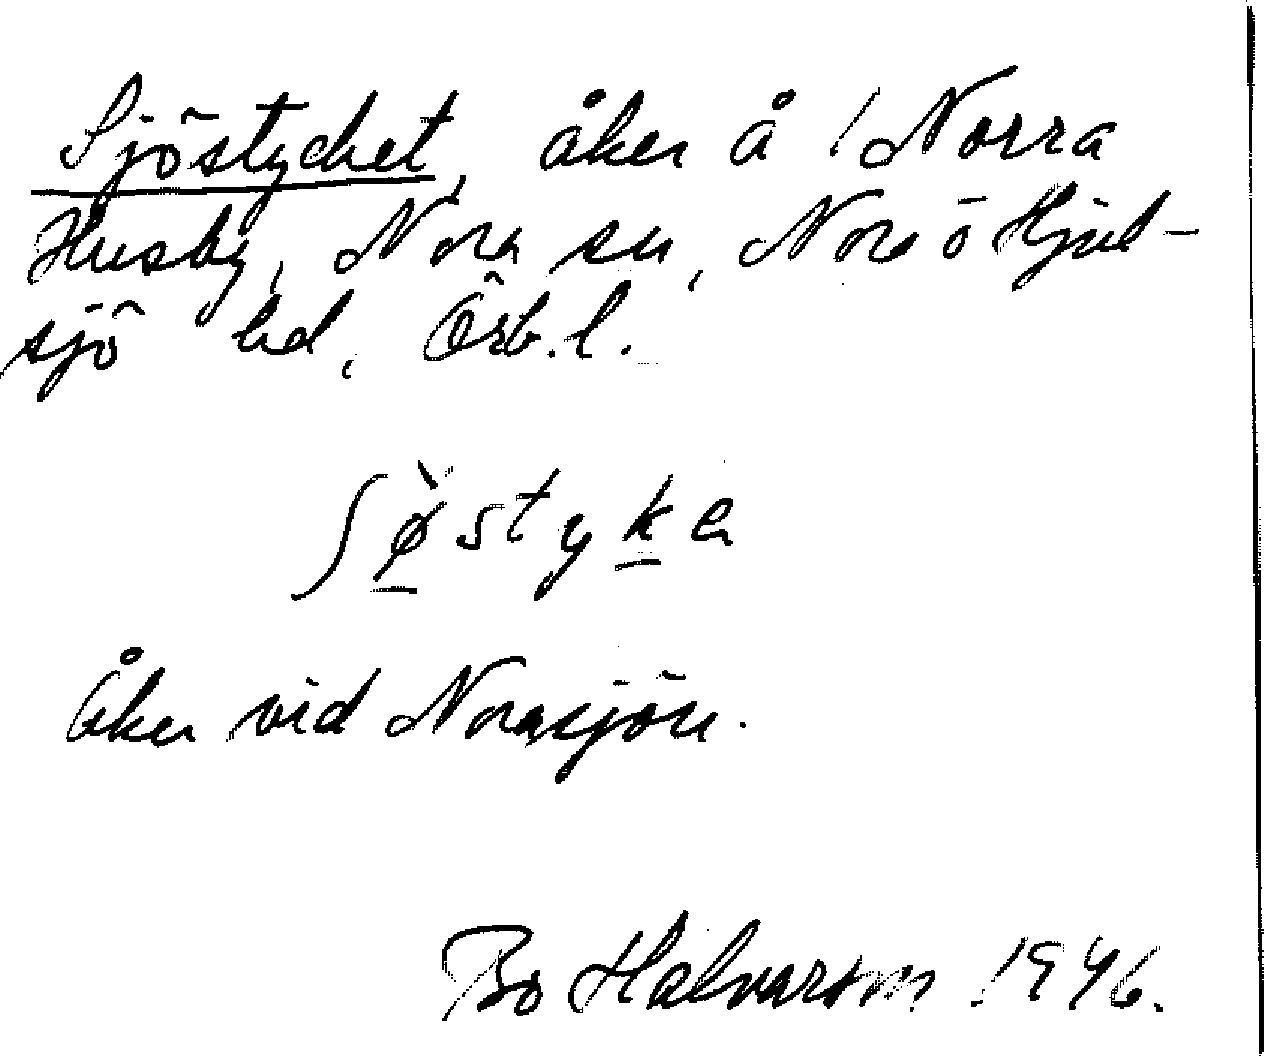 Sjöstycket, åker å 1 Norra
Husby, Nora sn, Nora ö Hjul-
sjö hd, Örb. l.
ʃø̀styke
Åker vid Norasjön.
Bo Halvarson 1946.